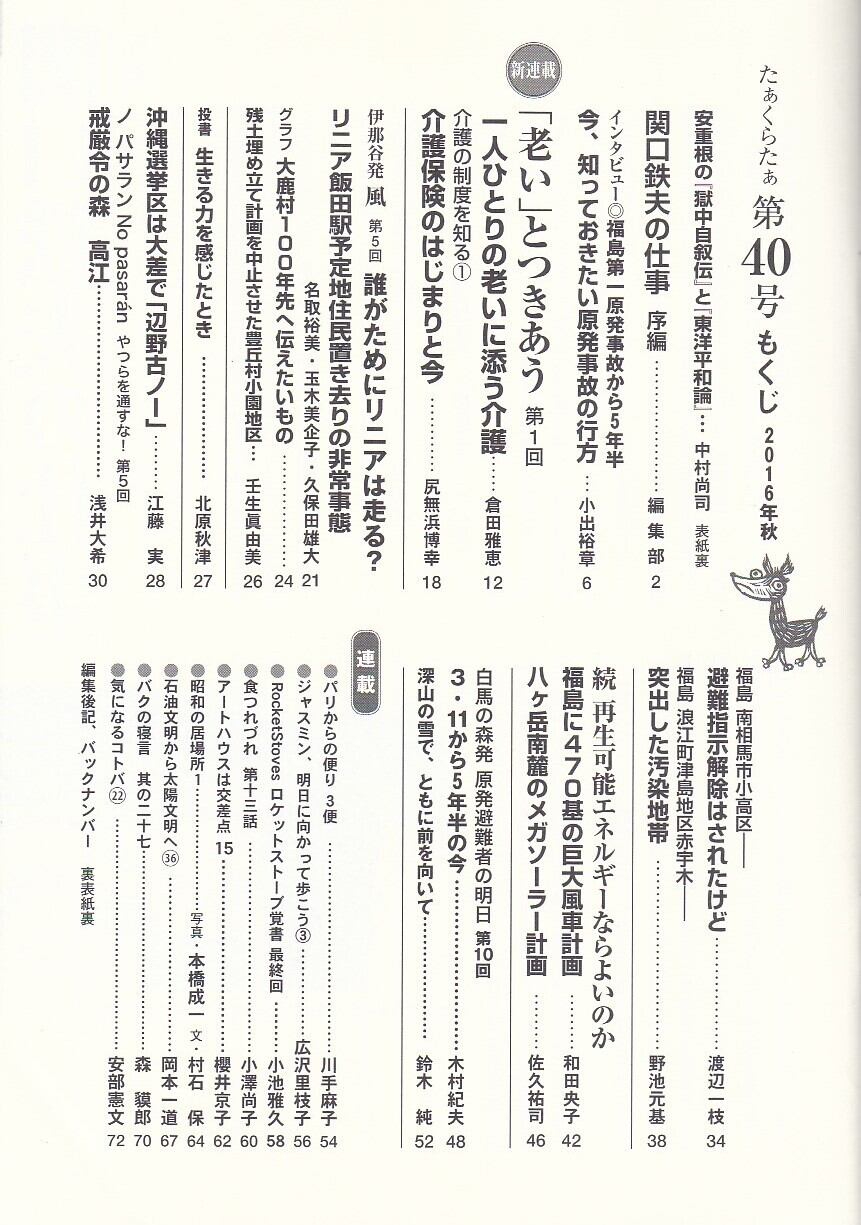 たぁくらたぁ 第40号 もくじ 2016年秋
安重根の『獄中自叙伝』と『東洋平和論』… 中村尚司 表紙裏
関口鉄夫の仕事 序編 …………………… 編集部 2
インタビュー◎福島第一原発事故から5年半
今、知っておきたい原発事故の行方 … 小出裕章 6
新連載
「老い」とつきあう 第1回
一人ひとりの老いに添う介護 …… 倉田雅恵 12
介護の制度を知る①
介護保険のはじまりと今 ………… 尻無浜博幸 18
伊那谷発 風 第5回 誰がためにリニアは走る?
リニア飯田駅予定地住民置き去りの非常事態
名取裕美・玉木美企子・久保田雄大 21
グラフ 大鹿村100年先へ伝えたいもの ………………… 24
残土埋め立て計画を中止させた豊丘村小園地区 … 壬生眞由美 26
投書 生きる力を感じたとき ………………… 北原秋津 27
沖縄選挙区は大差で「辺野古ノー」 ………… 江藤 実 28
ノ パサラン No pasarán やつらを通すな! 第5回
戒厳令の森 高江 ……………………………… 浅井大希 30
福島 南相馬市小高区――
避難指示解除はされたけど ………………… 渡辺一枝 34
福島 浪江町津島地区赤宇木――
突出した汚染地帯 …………………………… 野池元基 38
続 再生可能エネルギーならよいのか
福島に470基の巨大風車計画 ………… 和田央子 42
八ヶ岳南麓のメガソーラー計画 ………… 佐久祐司 46
白馬の森発 原発避難者の明日 第10回
3・11から5年半の今 ……………………………… 木村紀夫 48
深山の雪で、ともに前を向いて ……………………… 鈴木 純 52
連載
●パリからの便り 3便 ……………………………… 川手麻子 54
●ジャスミン、明日に向かって歩こう③ ……………… 広沢里枝子 56
●RocketStoves ロケットストーブ覚書 最終回 ………… 小池雅久 58
●食つれづれ 第十三話 ……………………………… 小澤尚子 60
●アートハウスは交差点 15 ……………………………… 櫻井京子 62
●昭和の居場所 1 ……………………… 写真・本橋成一 文・村石 保 64
●石油文明から太陽文明へ㊱ ……………………… 岡本一道 67
●バクの寝言 其の二十七 ……………………………… 森 貘郎 70
●気になるコトバ㉒ ……………………………… 安部憲文 72
編集後記、バックナンバー 裏表紙裏